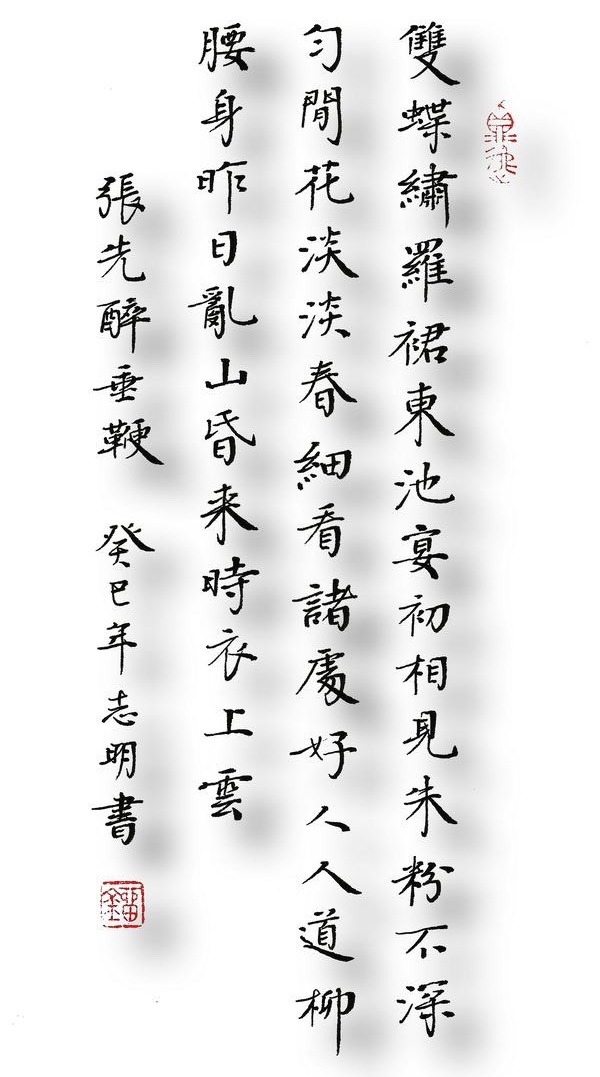 雙蝶繡羅裙東池宴初相見朱粉不深
匀閒花淡淡春細看諸處好人人道柳
腰身昨日亂山昏来時衣上雲
張先醉垂鞭 癸巳年志明書